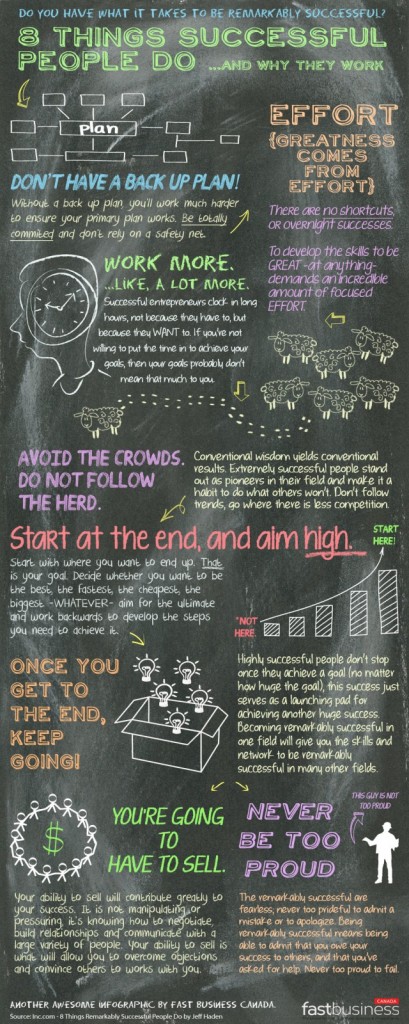 DO YOU HAVE WHAT IT TAKES TO BE REMARKABLY SUCCESSFUL?
8 THINGS SUCCESSFUL
PEOPLE DO ...AND WHY THEY WORK
plan
DON'T HAVE A BACK UP PLAN!
Without a back up plan, you'll work much harder
to ensure your primary plan works. Be totally
commited and don't rely on a safety net.
EFFORT
{GREATNESS
COMES
FROM
EFFORT}
There are no shortcuts,
or overnight successes.
To develop the skills to be
GREAT -at anything-
demands an incredible
amount of focused
EFFORT.
WORK MORE.
...LIKE, A LOT MORE.
Successful entrepreneurs clock-in long
hours, not because they have to, but
because they WANT to. If you're not
willing to put the time in to achieve your
goals, then your goals probably don't
mean that much to you.
AVOID THE CROWDS.
DO NOT FOLLOW
THE HERD.
Conventional wisdom yields conventional
results. Extremely successful people stand
out as pioneers in their field and make it a
habit to do what others won't. Don't follow
trends, go where there is less competition.
Start at the end, and aim high.
Start with where you want to end up. That
is your goal. Decide whether you want to be
the best, the fastest, the cheapest, the
biggest -WHATEVER- aim for the ultimate
and work backwards to develop the steps
you need to achieve it.
START
HERE!
*NOT
HERE.
ONCE YOU
GET TO
THE END,
KEEP
GOING!
Highly successful people don't stop
once they achieve a goal (no matter
how huge the goal), this success just
serves as a launching pad for
achieving another huge success.
Becoming remarkably successful in
one field will give you the skills and
network to be remarkably
successful in many other fields.
$
YOU'RE GOING
TO
HAVE TO SELL.
Your ability to sell will contribute greatly to
your success. It is not manipulating or
pressuring, it's knowing how to negotiate,
build relationships and communicate with a
large variety of people. Your ability to sell is
what will allow you to overcome objections
and convince others to works with you.
NEVER
BE TOO
PROUD
THIS GUY IS NOT
TOO PROUD
The remarkably successful are
fearless, never too prideful to admit a
mistake or to apologize. Being
remarkably successful means being
able to admit that you owe your
success to others, and that you've
asked for help. Never too proud to fail.
ANOTHER AWESOME INFOGRAPHIC BY FAST BUSINESS CANADA.
Source: Inc.com - 8 Things Remarkably Successful People Do by Jeff Haden
CANADA
fastbusiness